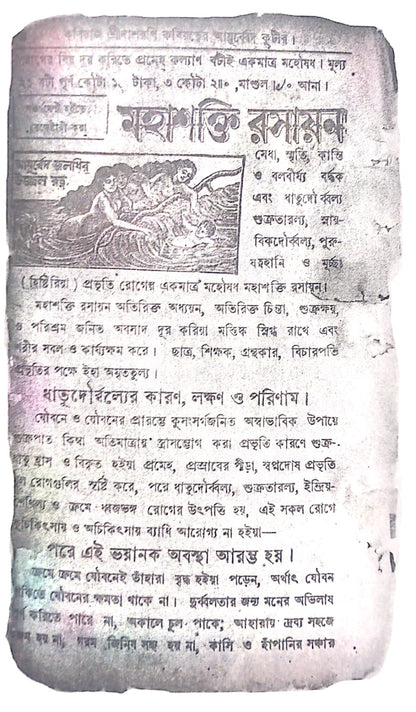 কবিরাজ শ্রীদাশরথি কবিরত্নের আয়ুর্ব্বেদ কুটীর।
রোগের বিষ দূর করিতে প্রমেহ কল্যাণ বটীই একমাত্র মহৌষধ। মূল্য
বটী পূর্ণ কৌটা ১৲ টাকা, ৩ কৌটা ২॥০, মাশুল ।৶০ আনা।
মহাশক্তি রসায়ন
আয়ুর্ব্বেদ জলধির
উজ্জ্বল রত্ন
মেধা, স্মৃতি, কান্তি
ও বলবীর্য্য বর্দ্ধক
এবং ধাতুদৌর্ব্বল্য
শুক্রতারল্য, স্নায়-
বিকদৌর্ব্বল্য, পুরু-
ষত্বহানি ও মূর্চ্ছা
(হিষ্টিরিয়া) প্রভৃতি রোগের একমাত্র মহৌষধ মহাশক্তি রসায়ন।
মহাশক্তি রসায়ন অতিরিক্ত অধ্যয়ন, অতিরিক্ত চিন্তা, শুক্রক্ষয়,
ও পরিশ্রম জনিত অবসাদ দূর করিয়া মস্তিষ্ক স্নিগ্ধ রাখে এবং
শরীর সবল ও কার্য্যক্ষম করে। ছাত্র, শিক্ষক, গ্রন্থকার, বিচারপতি
প্রভৃতির পক্ষে ইহা অমৃততুল্য।
ধাতুদৌর্ব্বল্যের কারণ, লক্ষণ ও পরিণাম।
যৌবনে ও যৌবনের প্রারম্ভে কুসংসর্গজনিত অস্বাভাবিক উপায়ে
শুক্রপাত কিম্বা অতিমাত্রায় স্ত্রীসম্ভোগ করা প্রভৃতি কারণে শুক্র-
ধাতু হ্রাস ও বিকৃত হইয়া প্রমেহ, প্রস্রাবের পীড়া, স্বপ্নদোষ প্রভৃতি
মূল রোগগুলির সৃষ্টি করে, পরে ধাতুদৌর্ব্বল্য, শুক্রতারল্য, ইন্দ্রিয়-
শৈথিল্য ও ক্রমে ধ্বজভঙ্গ রোগের উৎপত্তি হয়, এই সকল রোগে
কুচিকিৎসায় ও অচিকিৎসায় ব্যাধি আরোগ্য না হইয়া—
পরে এই ভয়ানক অবস্থা আরম্ভ হয়।
ক্রমে ক্রমে যৌবনেই তাঁহারা বৃদ্ধ হইয়া পড়েন, অর্থাৎ যৌবন
থাকিতে যৌবনের ক্ষমতা থাকে না। দুর্ব্বলতার জন্য মনের অভিলাষ
পূর্ণ করিতে পারে না, অকালে চুল পাকে; আহারীয় দ্রব্য সহজে
হজম হয় না, গরম জিনিষ সহ্য হয় না, কাসি ও হাঁপানির সঞ্চার